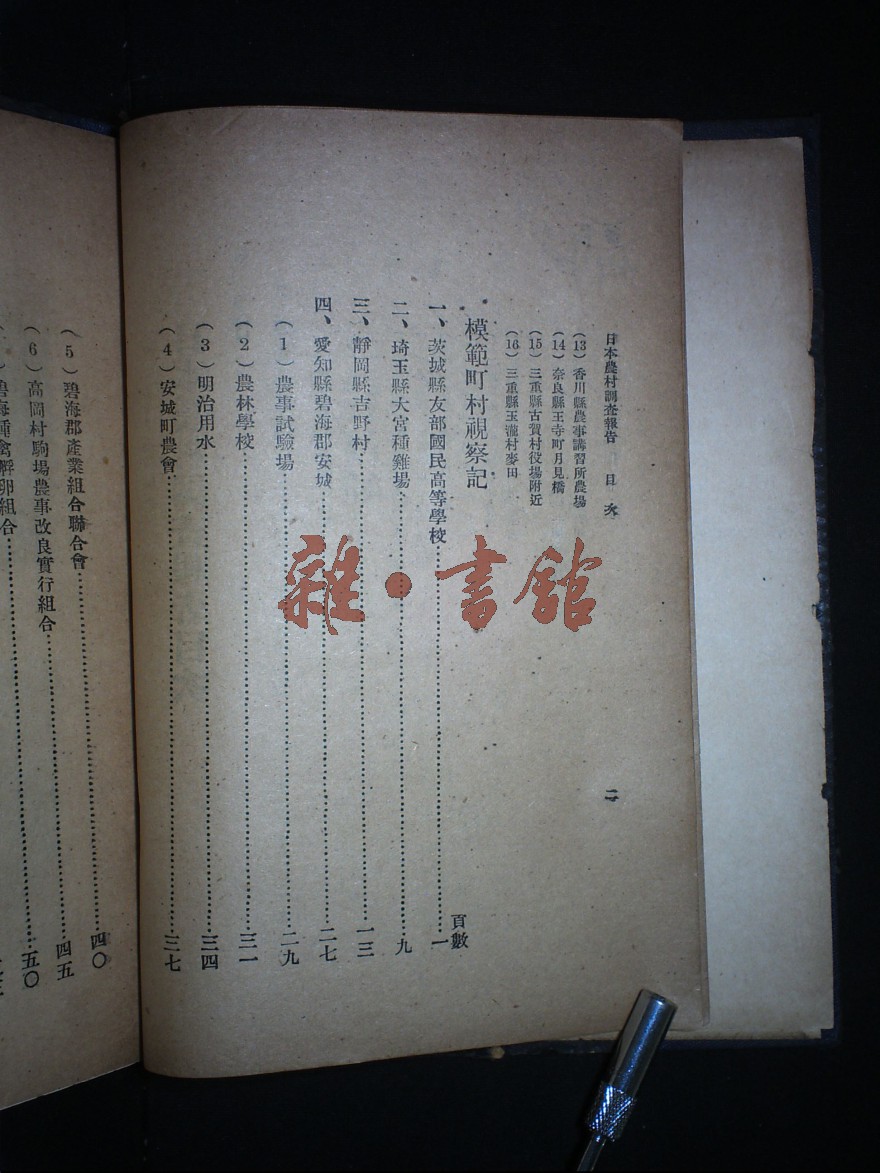 日本農村調查報告　目次　二
(13)香川縣農事講習所農場
(14)奈良縣王寺町月見橋
(15)三重縣古賀村役場附近
(16)三重縣玉瀧村麥田
模範町村視察記
頁數
一、茨城縣友部國民高等學校……一
二、埼玉縣大宮種雞場……九
三、靜岡縣吉野村……一三
四、愛知縣碧海郡安城……二七
(1)農事試驗場……二九
(2)農林學校……三一
(3)明治用水……三四
(4)安城町農會……三七
(5)碧海郡產業組合聯合會……四〇
(6)高岡村駒場農事改良實行組合……四五
碧海種禽孵卵組合……五〇
雜·書館